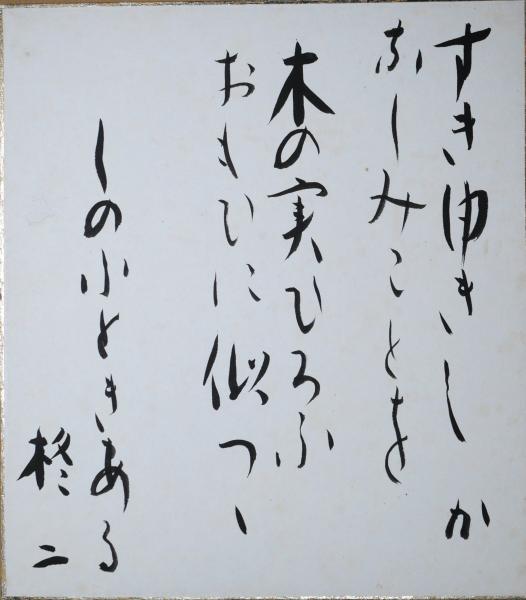 すぎゆきしか
なしみごとを
木の実ひろふ
おもひに似つゝ
しのぶときある
柊二